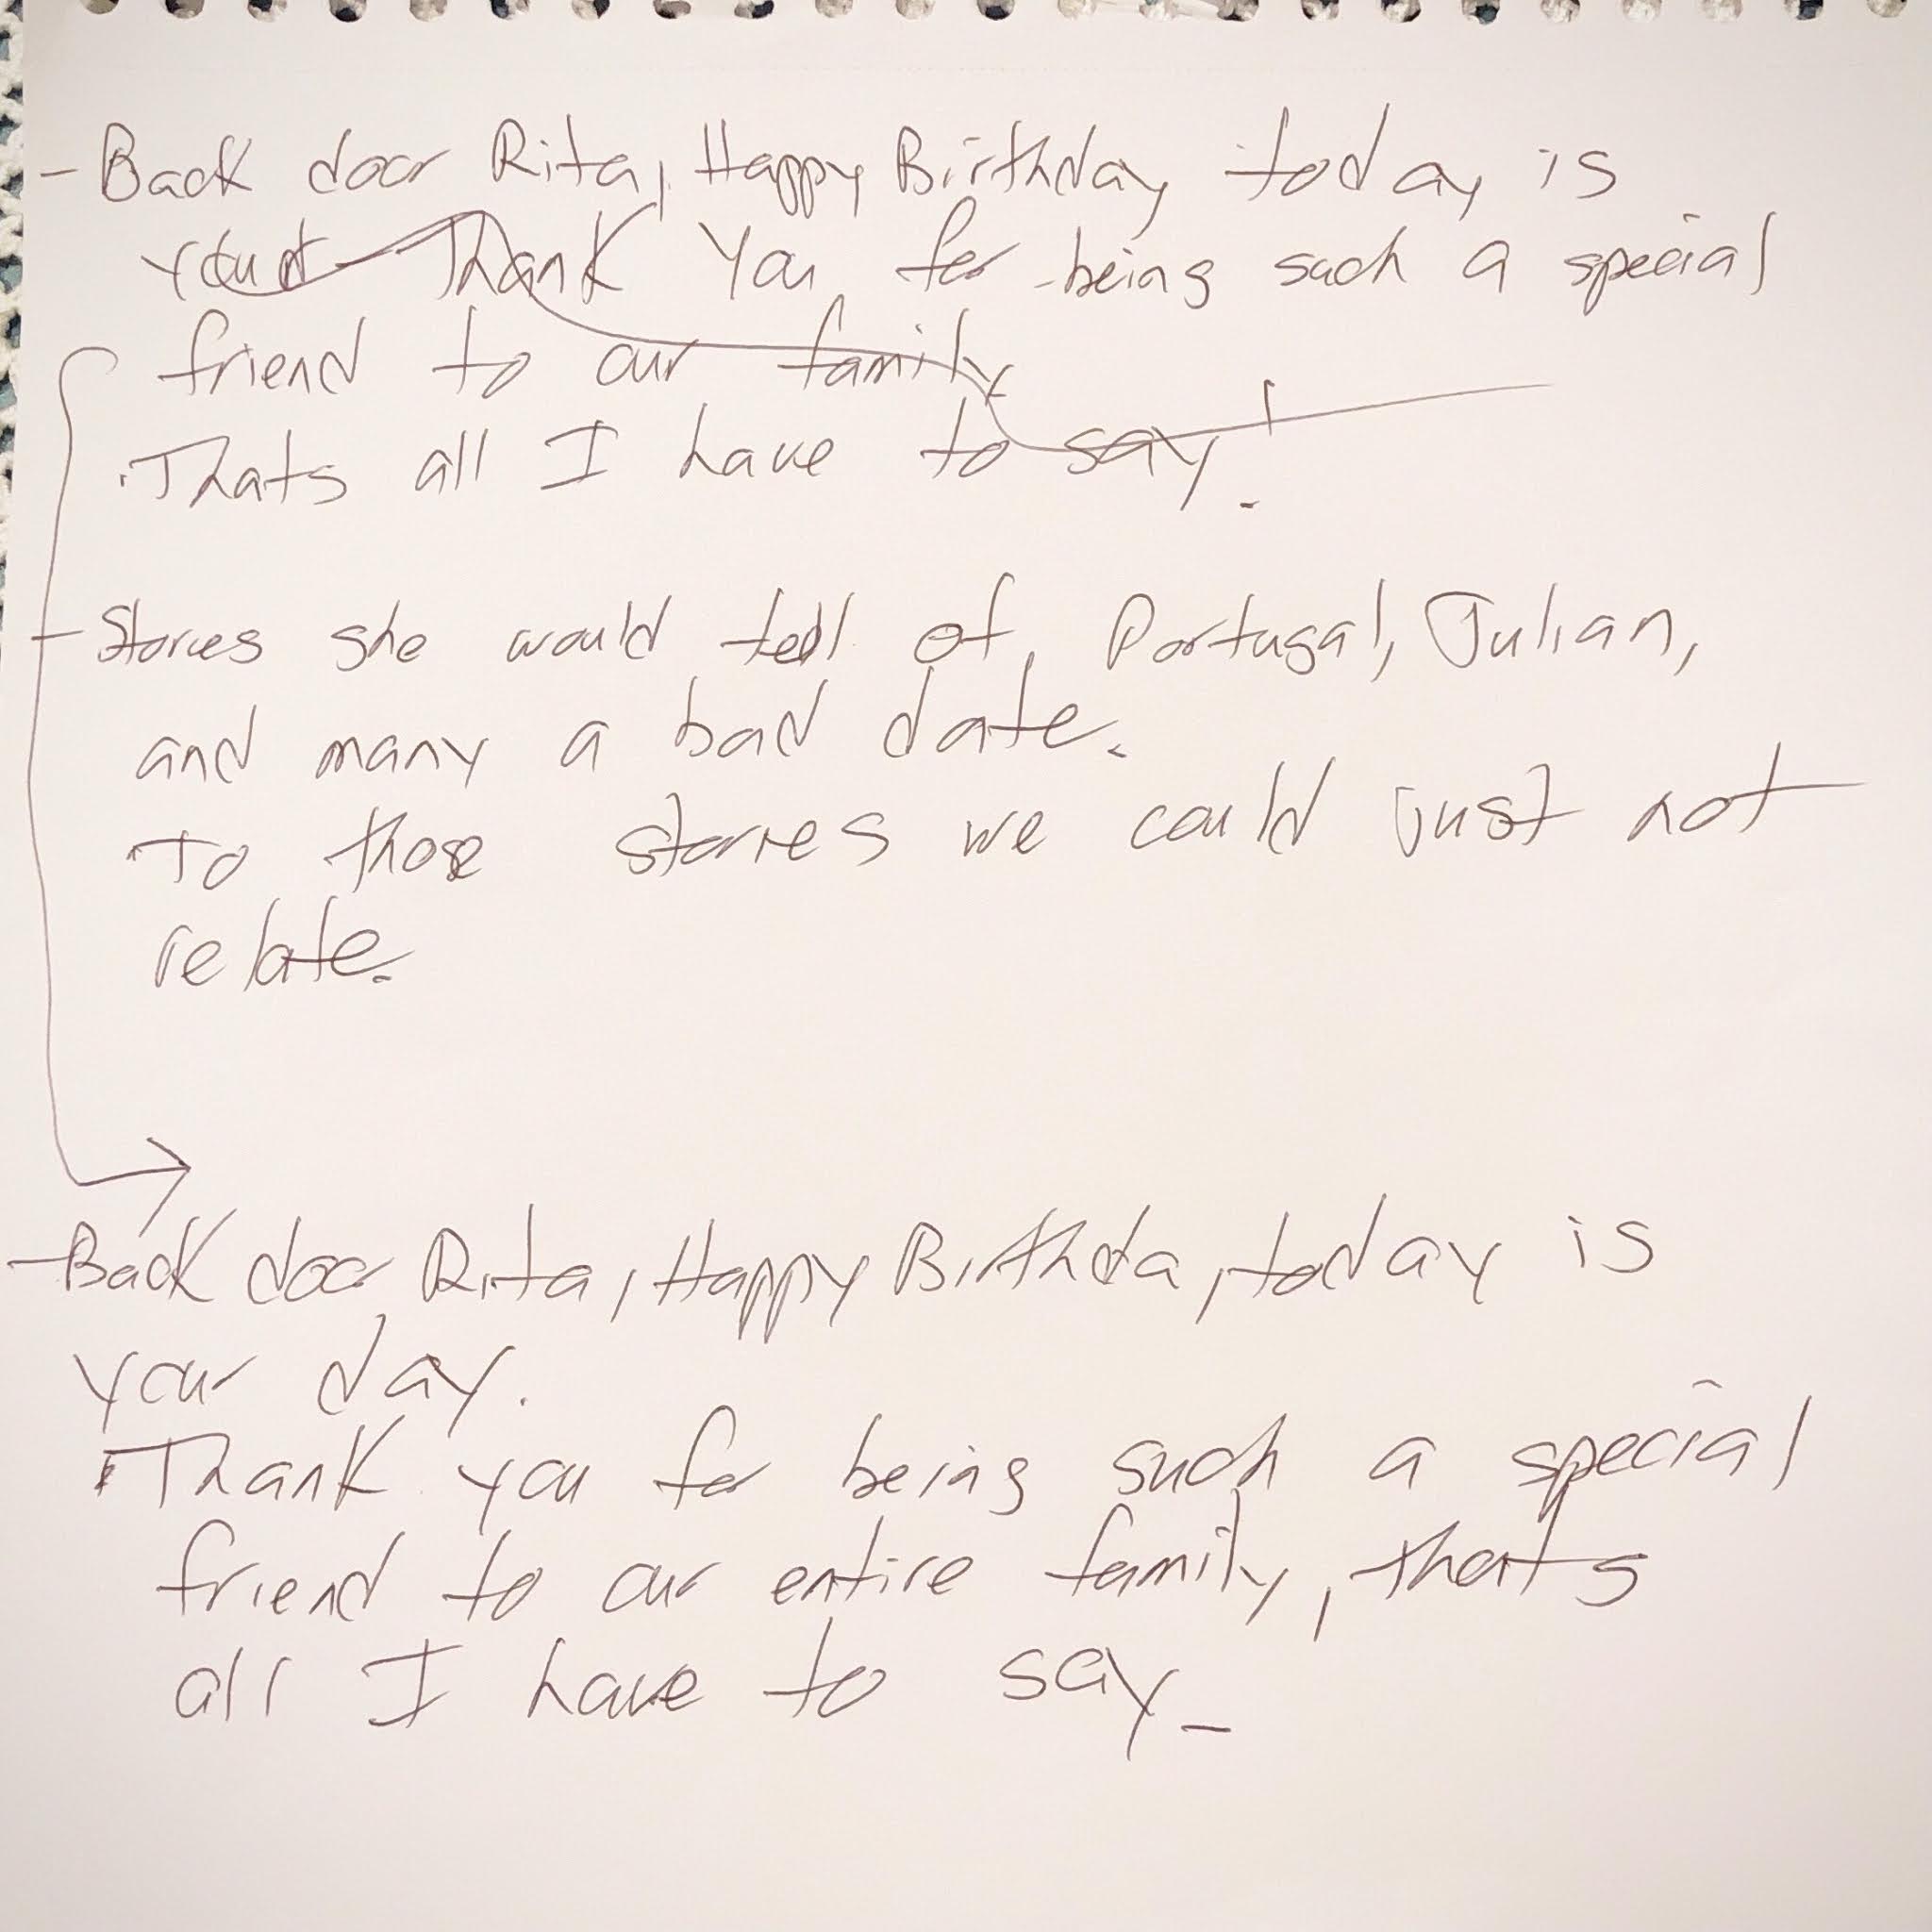 - Back door Rita, Happy Birthday today is
Thank You for being such a special
friend to our family.
Thats all I have to say!
- Stories she would tell of Portugal, Julian,
and many a bad date.
To those stories we could just not
relate.
- Back door Rita, Happy Birthda, today is
your day.
Thank you for being such a special
friend to our entire family, that's
all I have to say_